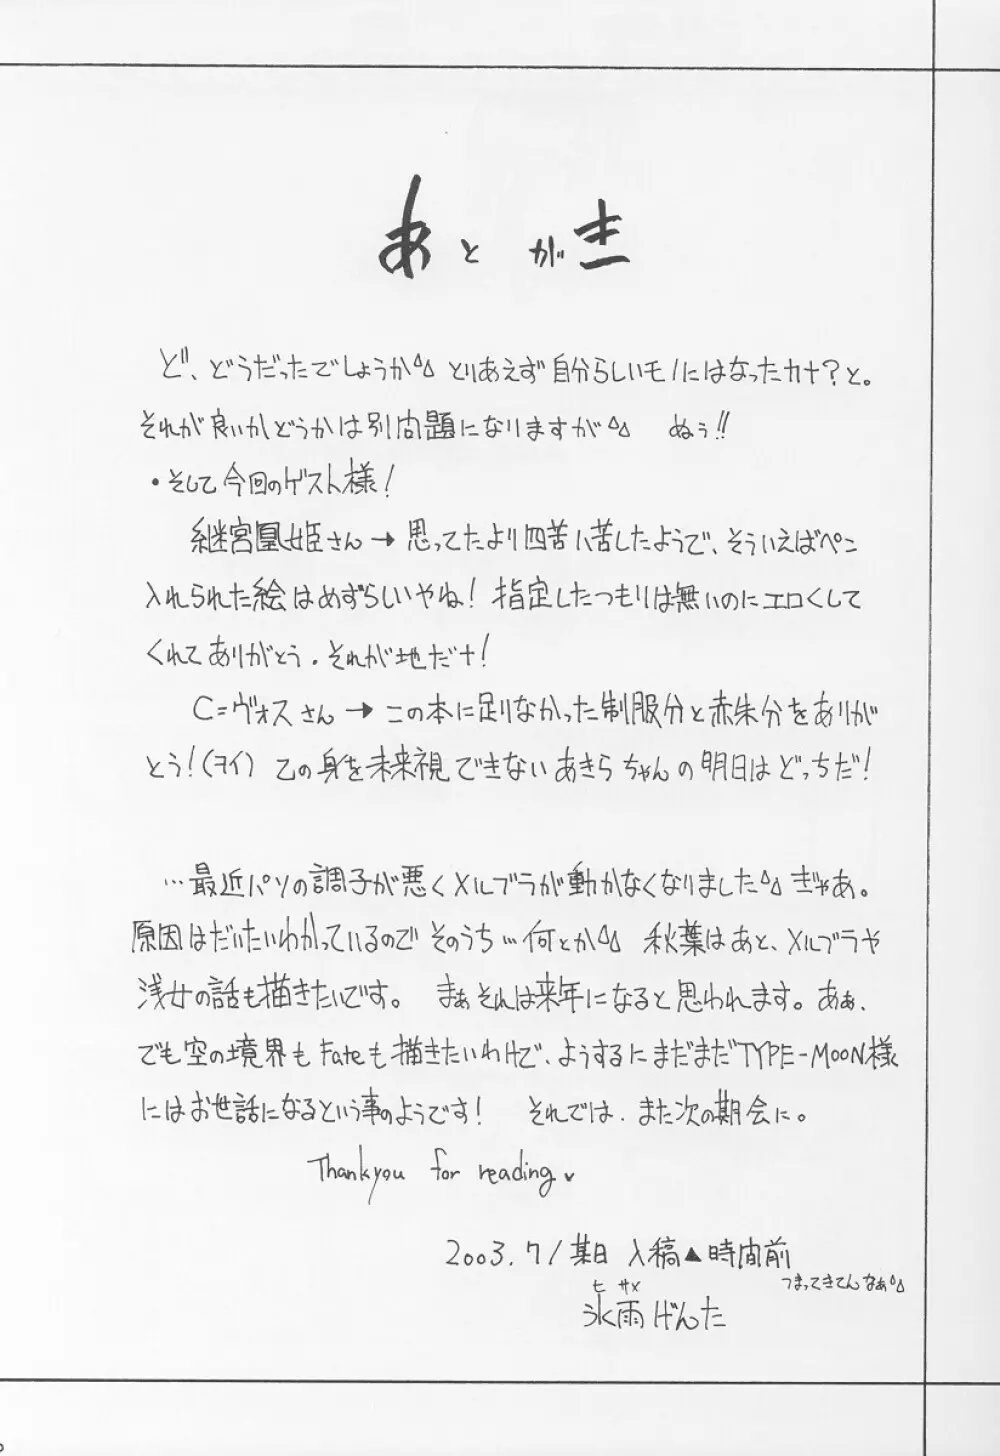 あとがき
ど、どうだったでしょうか^^ とりあえず自分らしいモノにはなったカナ?と。
それが良いかどうかは別問題になりますが^^ ぬぅ!!
・そして今回のゲスト様!
継宮凰姫さん→思ってたより四苦八苦したようで、そういえばペン
入れられた絵はめずらしいやね!指定したつもりは無いのにエロくして
くれてありがとう。それが地だナ!
C=ヴォスさん→この本に足りなかった制服分と赤朱分をありが
とう!(ヲイ) 乙の身を未来視できないあきらちゃんの明日はどっちだ!
…最近パソの調子が悪くメルブラが動かなくなりました^^ ぎゃあ。
原因はだいたいわかっているのでそのうち…何とか^^ 秋葉はあと、メルブラや
浅女の話も描きたいです。 まぁそれは来年になると思われます。あぁ、
でも空の境界もFateも描きたいわけで、ようするにまだまだTYPE-MOON様
にはお世話になるという事のようです! それでは、また次の期会に。
Thankyou for reading
2003.7/某日 入稿▲時間前
つまってきてんなぁ^^
ヒサメ
氷雨げんた